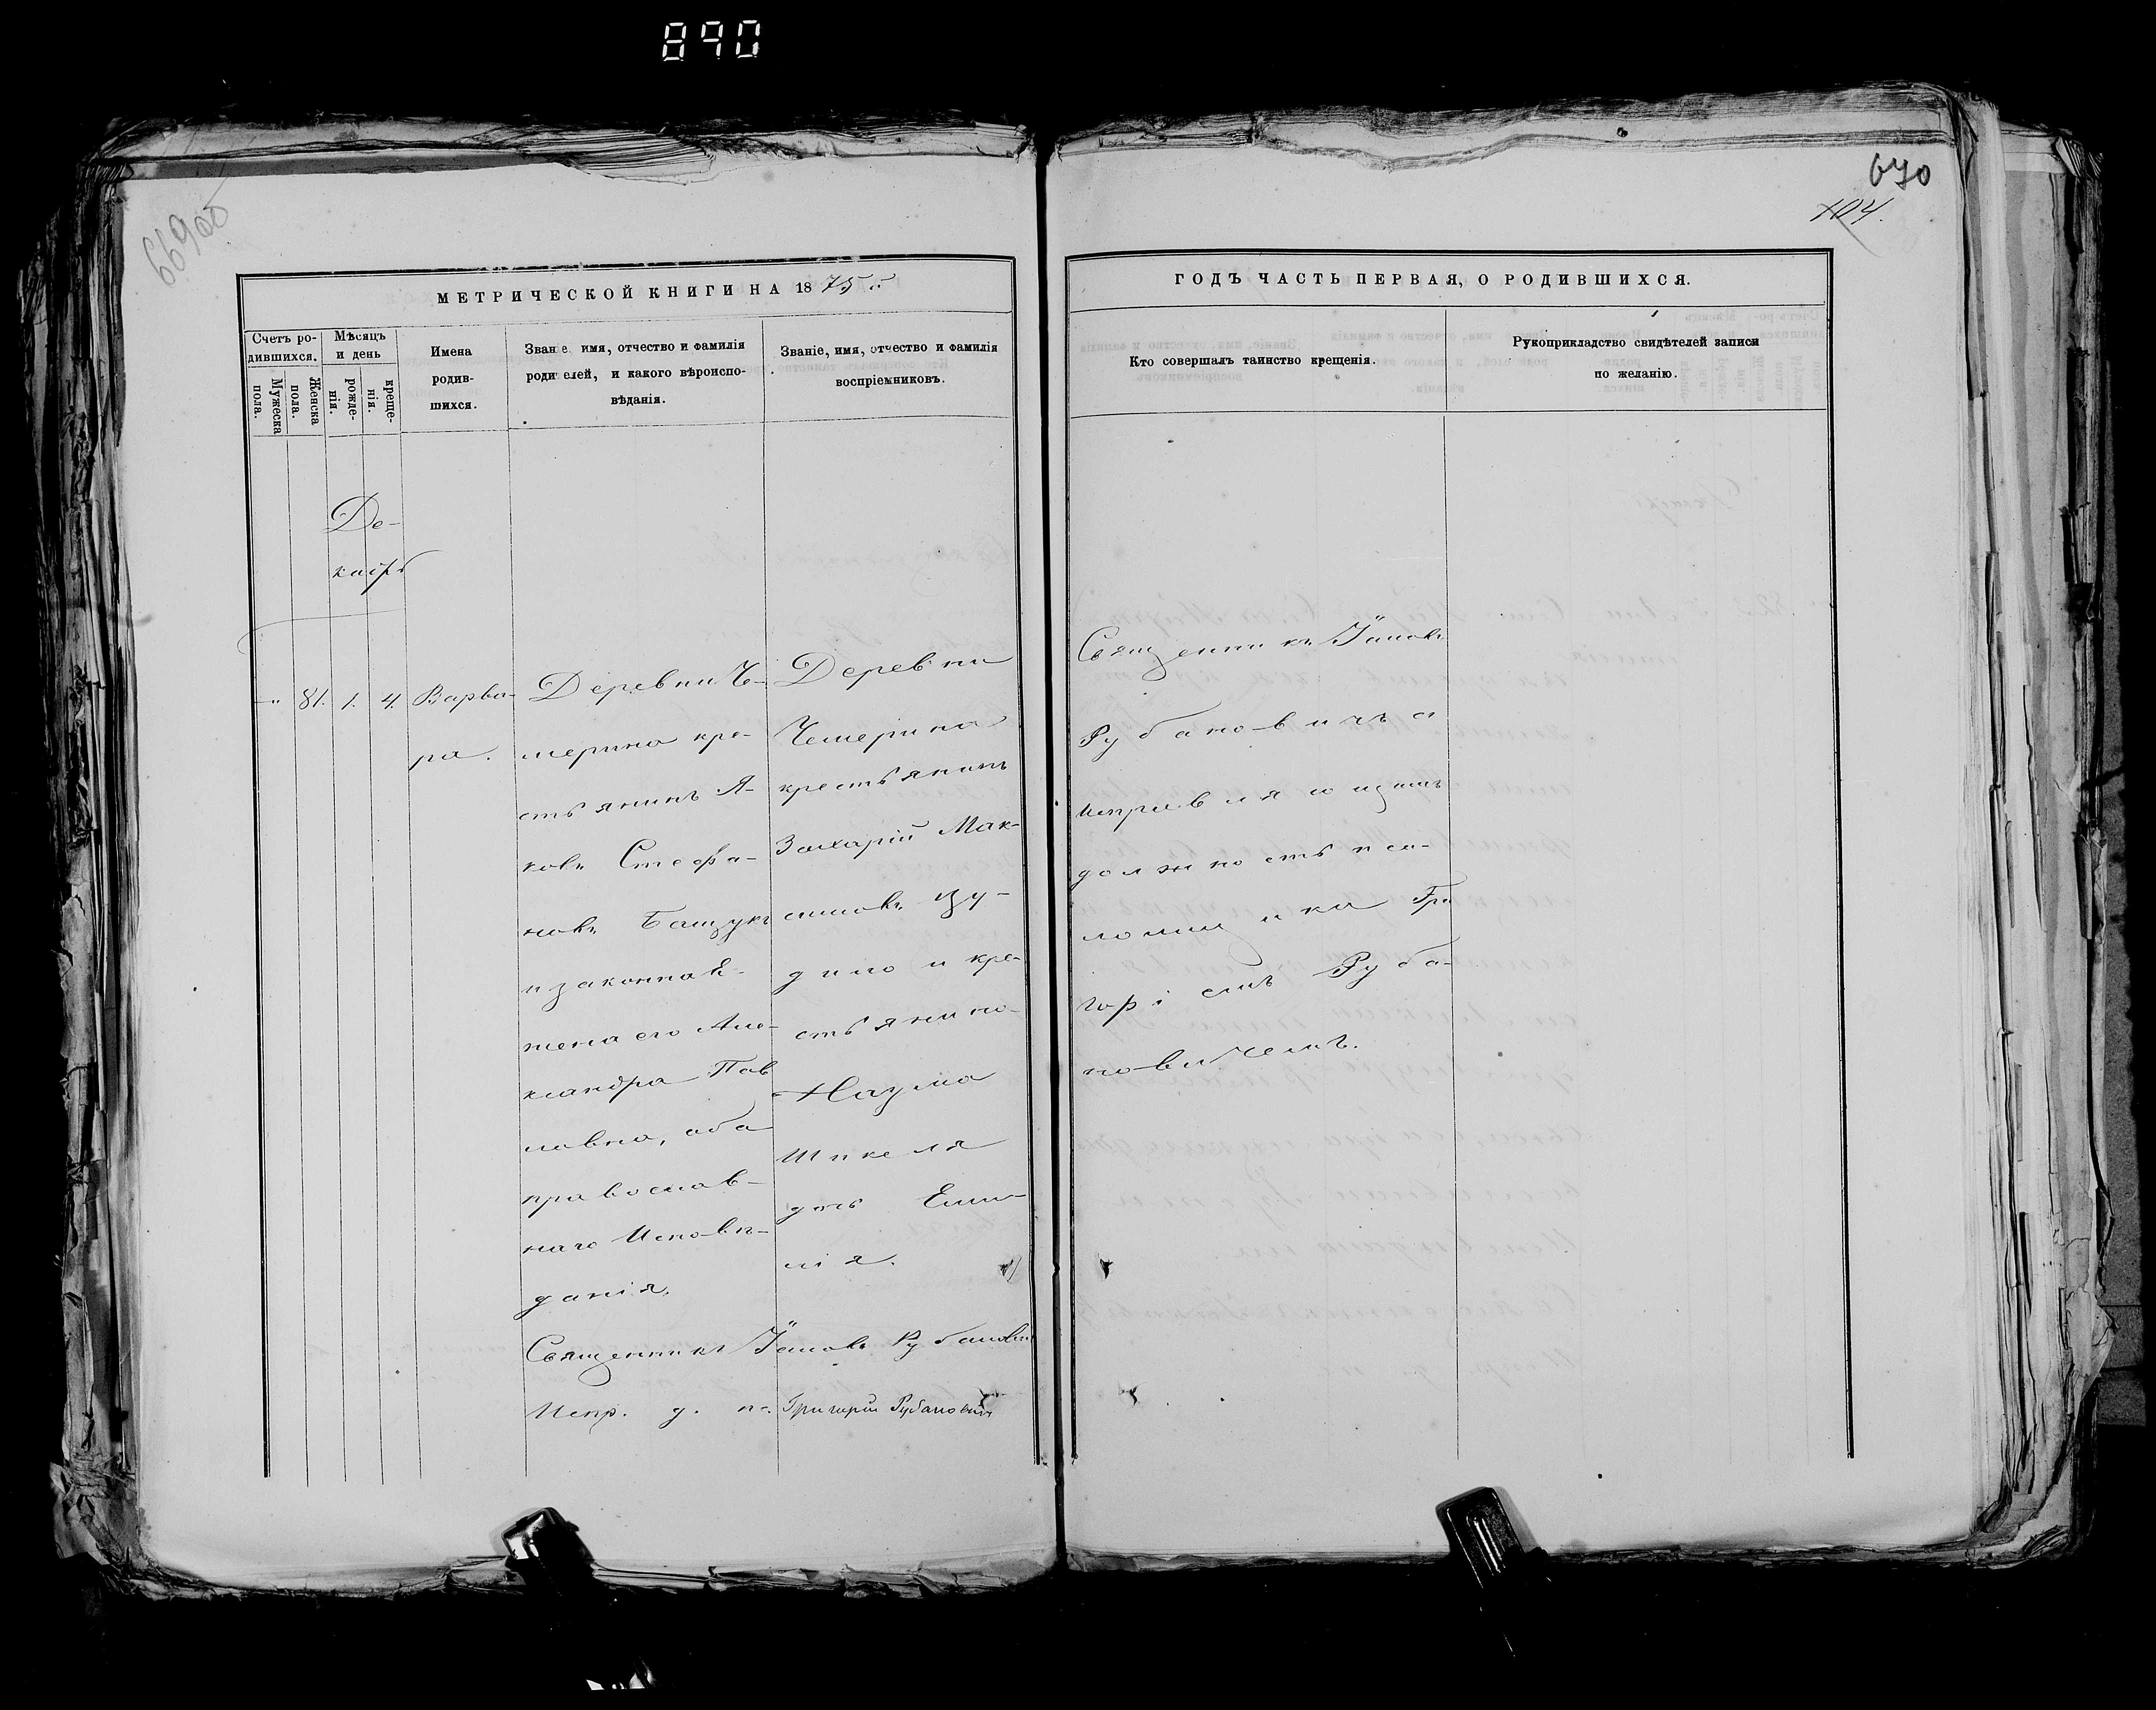 890
669об
670
104.
МЕТРИЧЕСКОЙ КНИГИ НА 1875
ГОДЪ ЧАСТЬ ПЕРВАЯ, О РОДИВШИХСЯ.
Счетъ ро-
дившихся.
Мужеска
пола.
Женска
пола.
Мѣсяцъ
и день
рожде-
нія.
креще-
нія.
Имена
родив-
шихся.
Званіе имя, отчество и фамилія
родителей, и какого вѣроиспо-
вѣданія.
Званіе, имя, отчество и фамилія
воспріемниковъ.
Кто совершалъ таинство крещенія.
Рукоприкладство свидѣтелей записи
по желанію.
Де-
кабрь
" 81. 1. 4. Варва-
ра.
Деревни Че-
мерина кре-
стьянинъ Я-
ковъ Стефа-
новъ Бащукъ
и законная
жена его Але-
ксандра Пав
ловна, оба
православ-
наго Исповѣ-
данія.
Деревни
Чемерина
крестьянинъ
Захарій Мак-
симовъ
и кре-
стьянина
Наума
Шикеля
дочь Еми-
лія.
Священникъ Іаковъ Рубановичъ
Испр. д. пс. Григорій Рубановичъ
Священникъ Іаковъ
Рубановичъ съ
исправляющимъ
должность пса-
ломщика Гри
горіемъ Руба-
новичемъ.